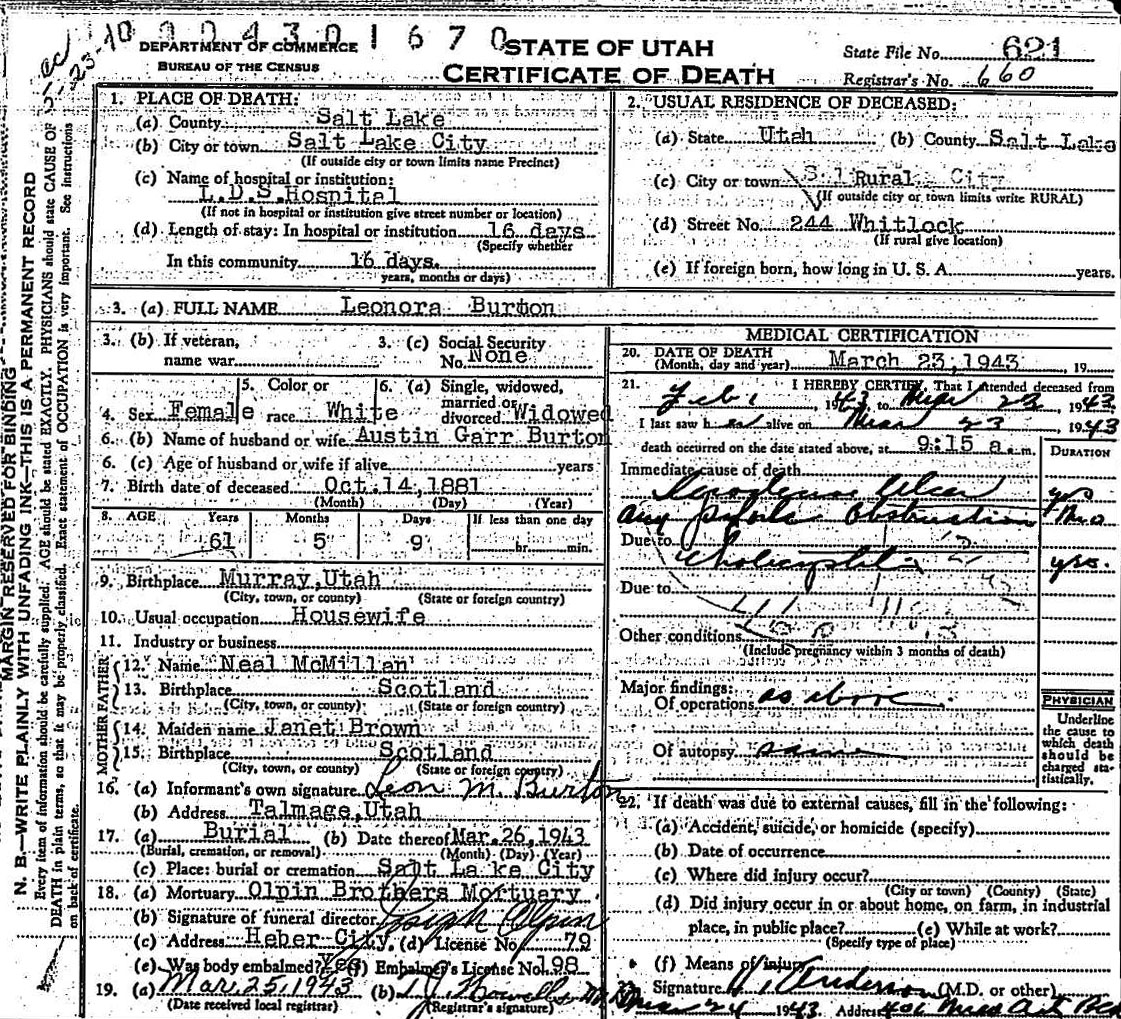 1 6 7 0
DEPARTMENT OF COMMERCE
BUREAU OF THE CENSUS
STATE OF UTAH
CERTIFICATE OF DEATH
State File No. 621
Registrar's No. 660
MARGIN RESERVED FOR BINDING
N. B.—WRITE PLAINLY WITH UNFADING INK—THIS IS A PERMANENT RECORD
Every item of information should be carefully supplied. AGE should be stated EXACTLY. PHYSICIANS should state CAUSE OF
DEATH in plain terms, so that it may be properly classified. Exact statement of OCCUPATION is very important. See instructions
on back of certificate.
1. PLACE OF DEATH:
(a) County Salt Lake
(b) City or town Salt Lake City
(If outside city or town limits name Precinct)
(c) Name of hospital or institution:
L.D.S. Hospital
(If not in hospital or institution give street number or location)
(d) Length of stay: In hospital or institution 16 days
(Specify whether
In this community 16 days.
years, months or days)
2. USUAL RESIDENCE OF DECEASED:
(a) State Utah (b) County Salt Lake
(c) City or town Rural City
(If outside city or town limits write RURAL)
(d) Street No. 244 Whitlock
(If rural give location)
(e) If foreign born, how long in U. S. A. years.
3. (a) FULL NAME Leonora Burton
3. (b) If veteran,
name war
3. (c) Social Security
No. None
4. Sex Female
5. Color or
race White
6. (a) Single, widowed,
married or
divorced Widowed
6. (b) Name of husband or wife Austin Garr Burton
6. (c) Age of husband or wife if alive years
7. Birth date of deceased Oct. 14, 1881
(Month) (Day) (Year)
8. AGE Years Months Days If less than one day
61 5 9 hr. min.
9. Birthplace Murray, Utah
(City, town, or county) (State or foreign country)
10. Usual occupation Housewife
11. Industry or business
FATHER
12. Name Neal McMillan
13. Birthplace Scotland
(City, town, or county) (State or foreign country)
MOTHER
14. Maiden name Janet Brown
15. Birthplace Scotland
(City, town, or county) (State or foreign country)
16. (a) Informant's own signature Leon M. Burton
(b) Address Talmage, Utah
17. (a) Burial (b) Date thereof Mar. 26, 1943
(Burial, cremation, or removal) (Month) (Day) (Year)
(c) Place: burial or cremation Salt Lake City
18. (a) Mortuary Olpin Brothers Mortuary
(b) Signature of funeral director Joseph Olpin
(c) Address Heber City (d) License No. 79
(e) Was body embalmed? Yes (f) Embalmer's License No. 198
19. (a) Mar. 25, 1943 (b)
(Date received local registrar) (Registrar's signature)
MEDICAL CERTIFICATION
20. DATE OF DEATH
(Month, day and year) March 23, 1943, 19
21. I HEREBY CERTIFY, That I attended deceased from
Feb 1 1943, to Mar 23 1943
I last saw h er alive on Mar 23, 1943
death occurred on the date stated above, at 9:15 a.m.
DURATION
Immediate cause of death
Ulcer yrs
Obstruction Mo
Due to
yrs.
Due to
Other conditions
(Include pregnancy within 3 months of death)
Major findings:
Of operations as above
Of autopsy same
PHYSICIAN
Underline
the cause to
which death
should be
charged sta-
tistically.
22. If death was due to external causes, fill in the following:
(a) Accident, suicide, or homicide (specify)
(b) Date of occurrence
(c) Where did injury occur?
(City or town) (County) (State)
(d) Did injury occur in or about home, on farm, in industrial
place, in public place? (e) While at work?
(Specify type of place)
(f) Means of injury
23. Signature Anderson (M.D. or other)
Mar 24 1943 Address